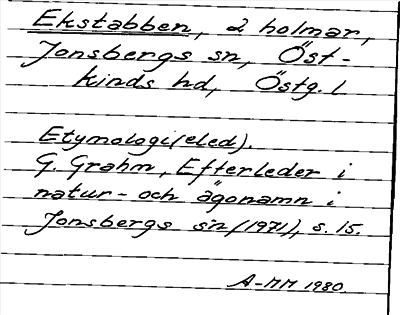 Ekstabben, 2 holmar,
Jonsbergs sn, Öst-
kinds hd, Östg. l
Etymologi(eled).
G. Grahm, Efterleder i
natur- och ägonamn i
Jonsbergs sn (1971), s. 15.
A-MM 1980.